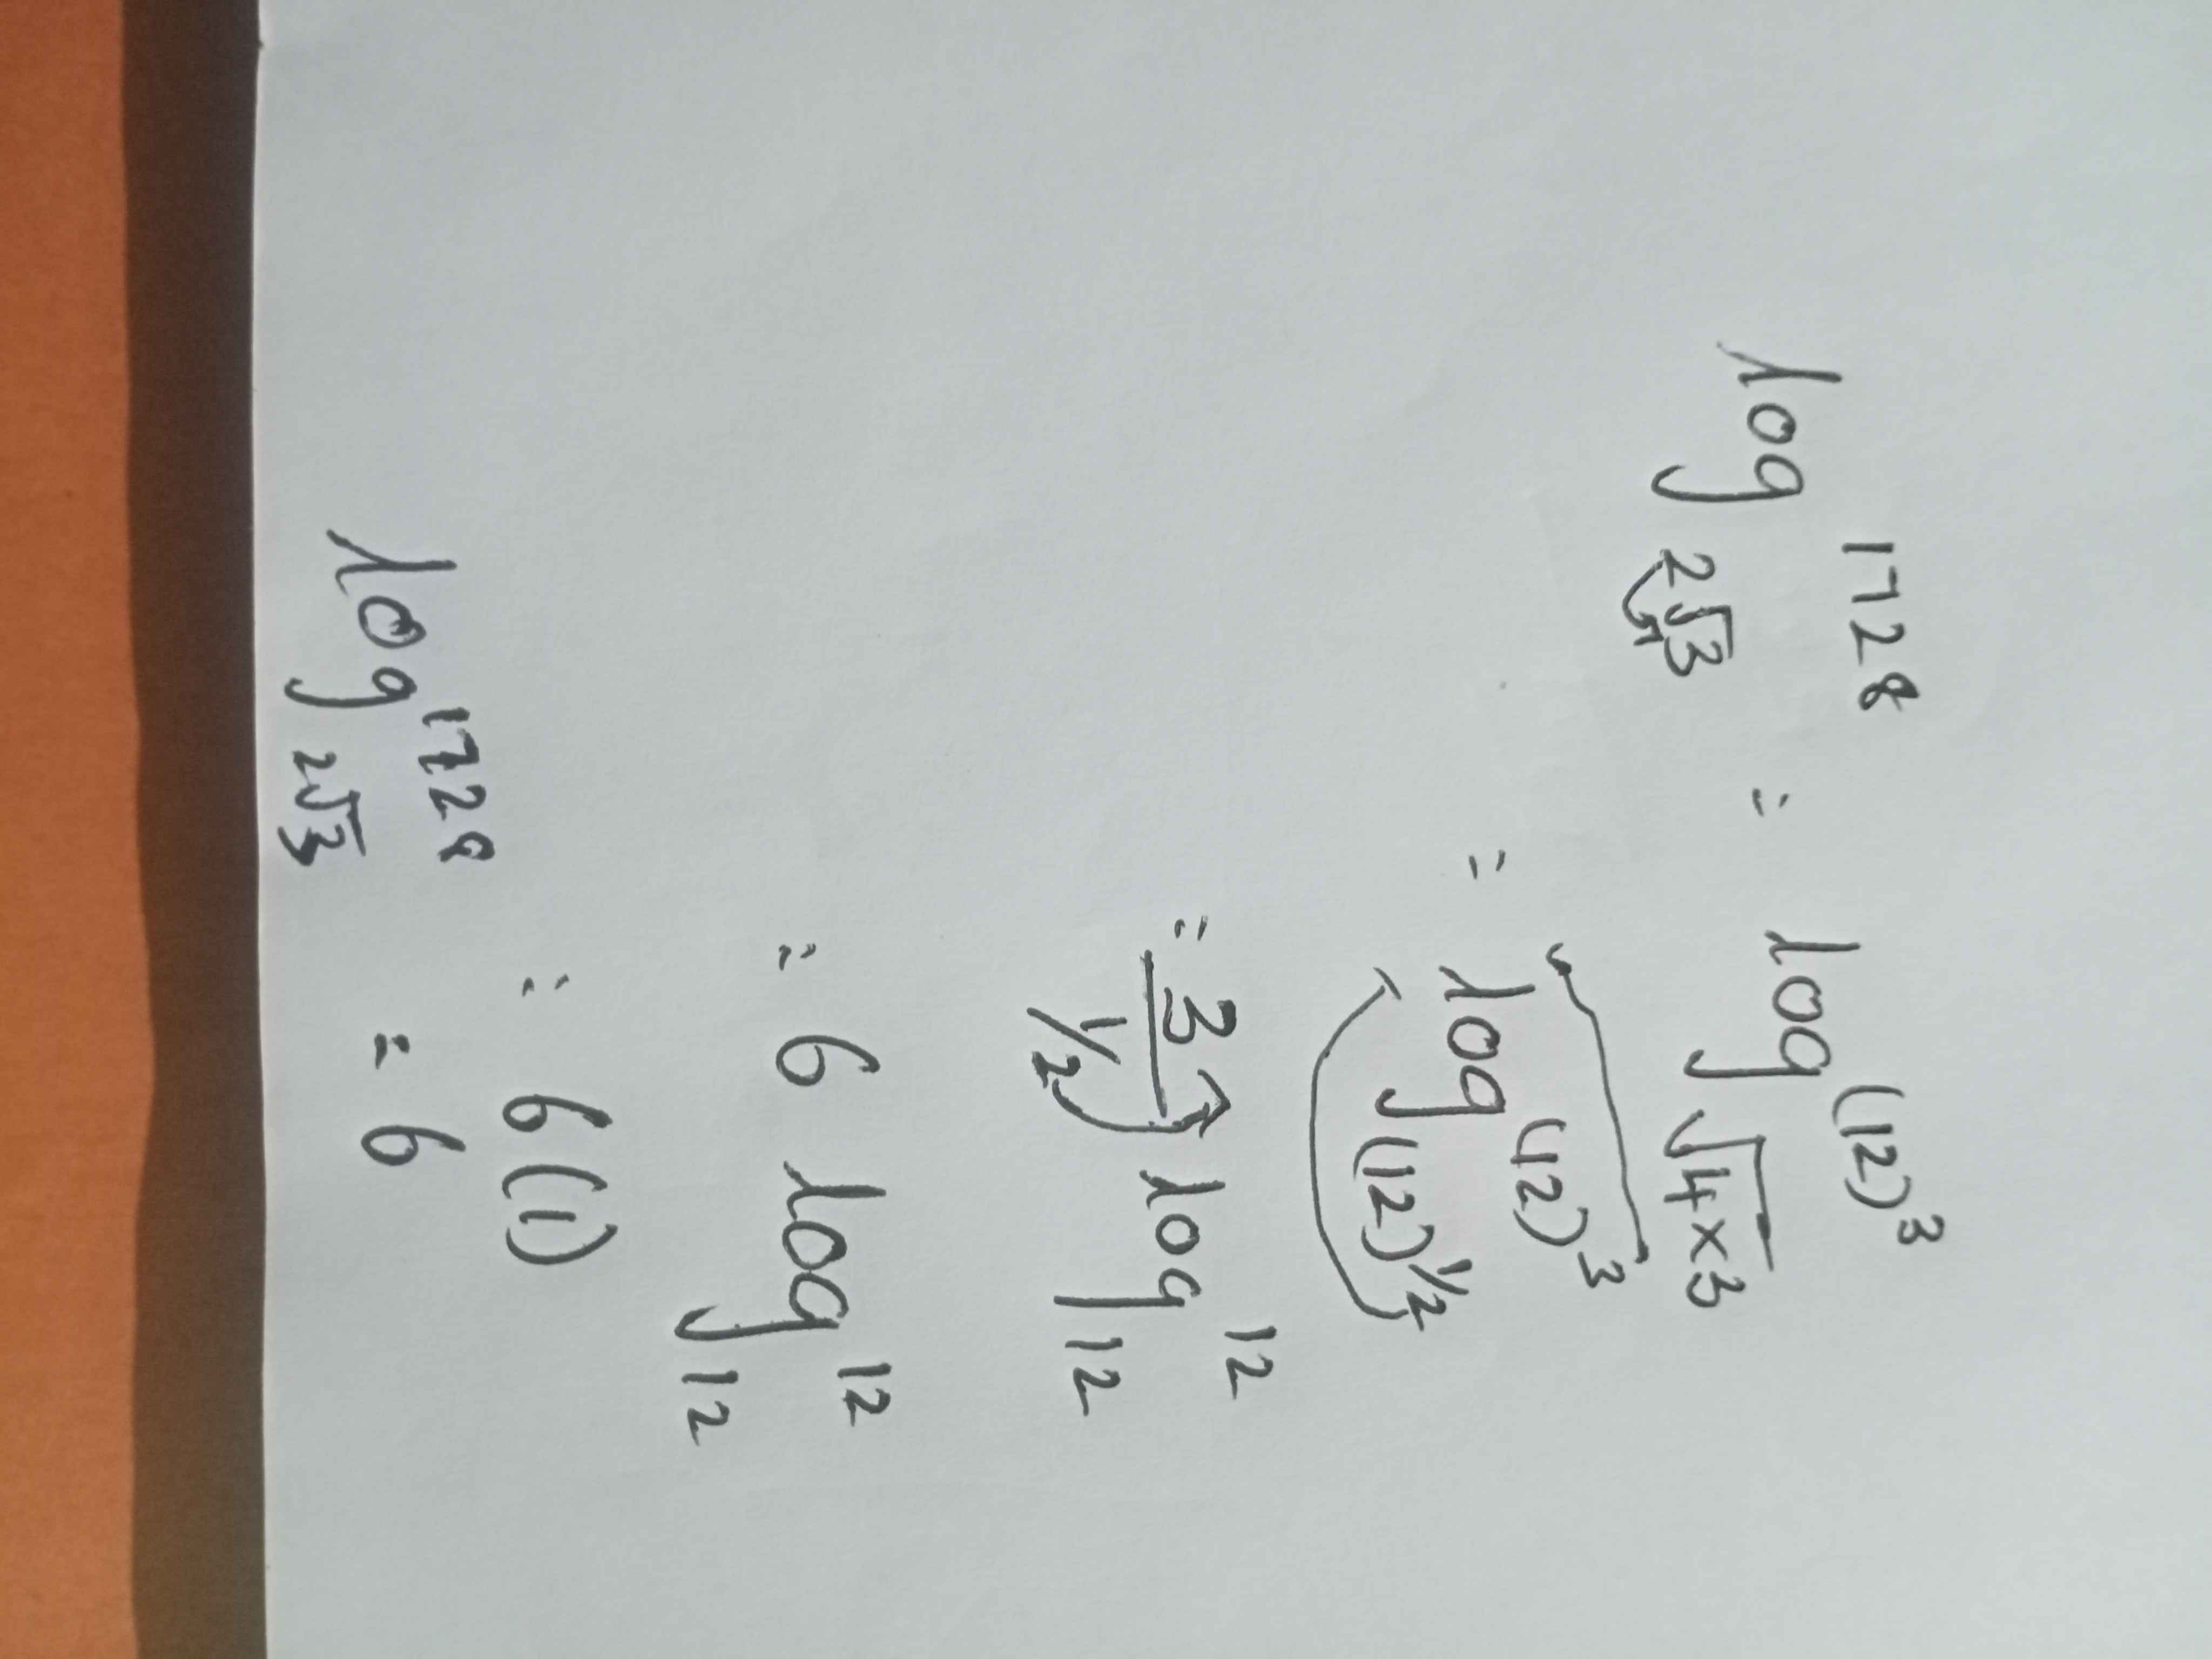 log 2√3 1728 = log √4×3 (12)³
= log (12)^1/2 (12)³
= 3/(1/2) log 12 12
= 6 log 12 12
= 6(1)
log 2√3 1728 = 6